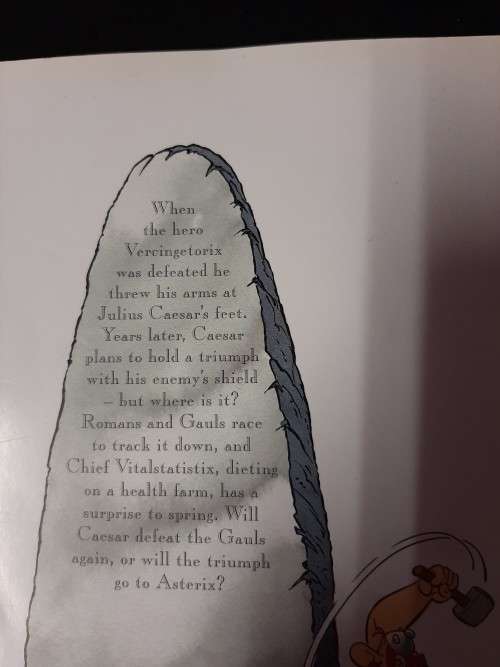 When
the hero
Vercingetorix
was defeated he
threw his arms at
Julius Caesar's feet.
Years later, Caesar
plans to hold a triumph
with his enemy's shield
– but where is it?
Romans and Gauls race
to track it down, and
Chief Vitalstatistix, dieting
on a health farm, has a
surprise to spring. Will
Caesar defeat the Gauls
again, or will the triumph
go to Asterix?